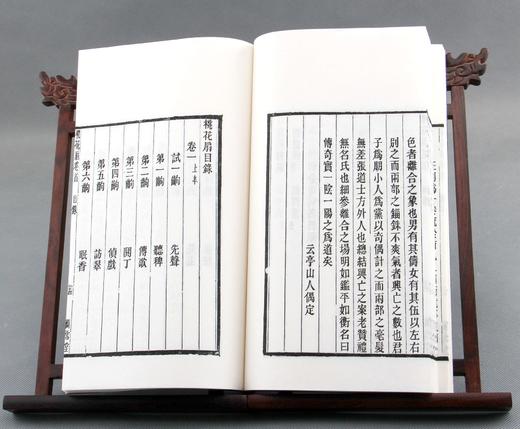 色者離合之象也男有其儔女有其伍以左右
別之而兩部之錙銖不爽氣者興亡之數也君
子爲朋小人爲黨以奇偶計之而兩部之毫髮
無差張道士方外人也總結興亡之案老贊禮
無名氏也細參離合之場明如鑑平如衡名曰
傳奇實一陰一陽之爲道矣
云亭山人偶定
桃花扇目錄
卷一 上本
試一齣 先聲
第一齣 聽稗
第二齣 傳歌
第三齣 鬨丁
第四齣 偵戲
第五齣 訪翠
第六齣 眠香
桃花扇卷一 目錄